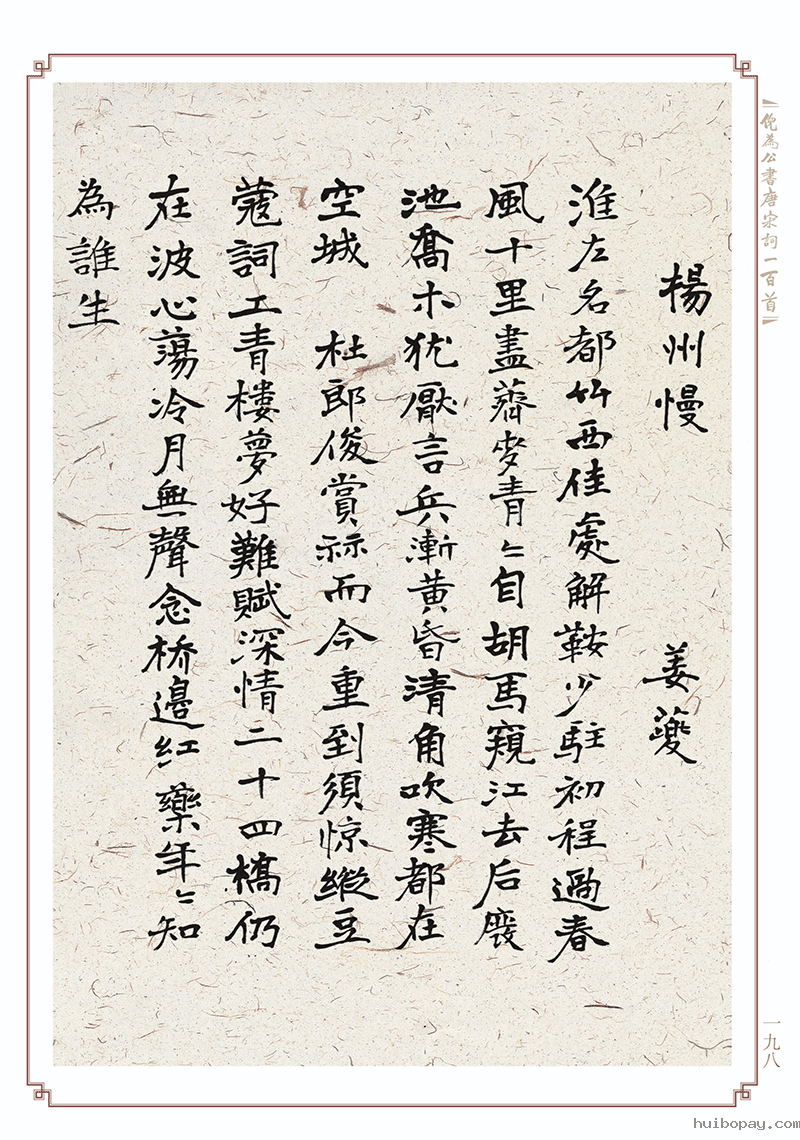 揚州慢
姜夔
淮左名都竹西佳處解鞍少駐初程過春
風十里盡薺麥青〻自胡馬窺江去后廢
池喬木犹厭言兵漸黄昏清角吹寒都在
空城 杜郎俊賞祘而今重到須惊縱豆
蔻詞工青樓夢好難賦深情二十四橋仍
在波心蕩冷月無聲念桥邊红藥年〻知
為誰生
倪為公書唐宋詞一百首
一九八
huibopay.com